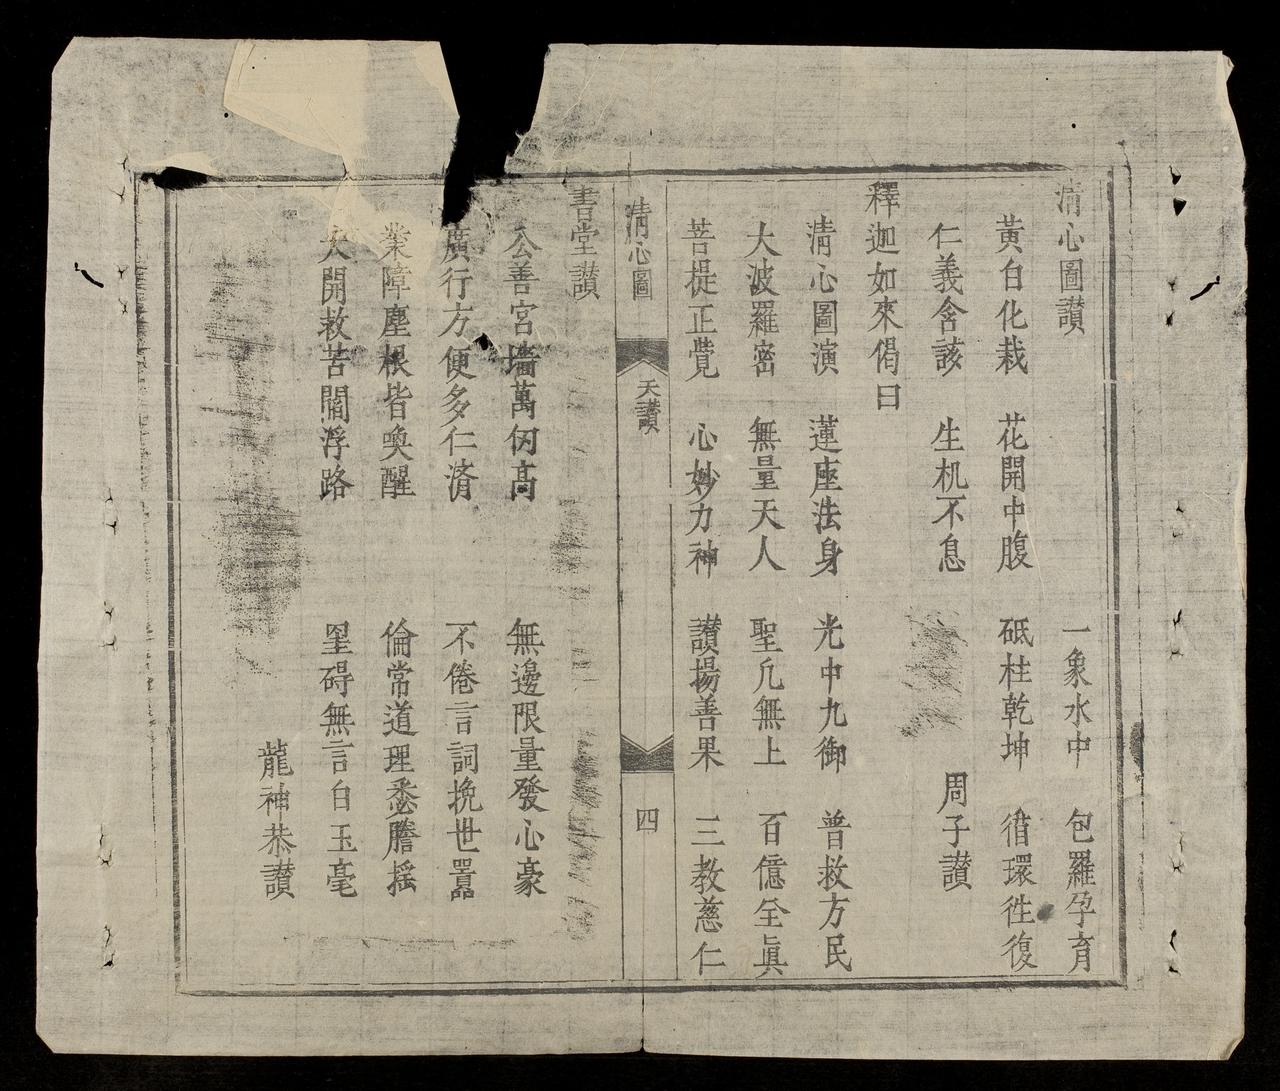 清心圖讃 一象水中 包羅孕育
黃白化栽 花開中腹 砥柱乾坤 循環徃復
仁義舍該 生机不息 周子讃
釋迦如來偈曰
清心圖演 蓮座法身 光中九御 普救方民
大波羅宻 無量天人 聖凢無上 百億全眞
菩提正覺 心妙力神 讃揚善果 三教慈仁
清心圖 天讃 四
書堂讃
公善宮墻萬仭高 無邊限量發心豪
廣行方便多仁濟 不倦言詞挽世囂
業障塵根皆喚醒 倫常道理悉膽摇
大開救苦閻浮路 罣碍無言白玉毫
龍神恭讃